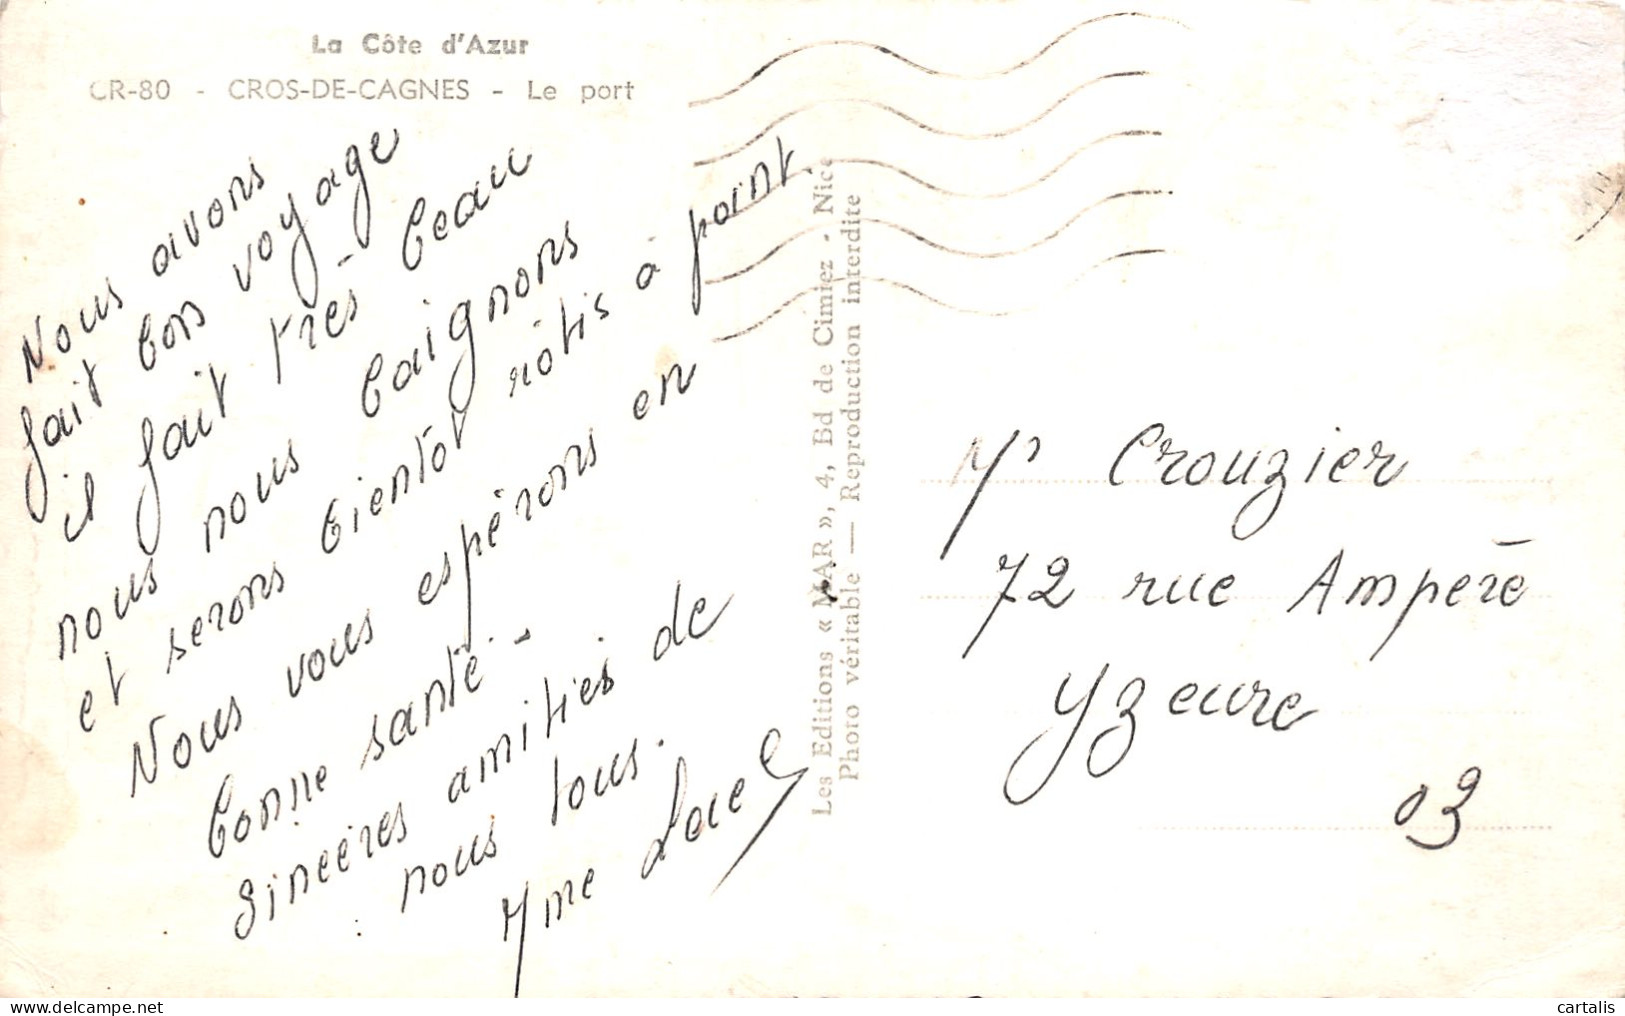 La Côte d'Azur
CR-80 - CROS-DE-CAGNES - Le port
Nous avons
fait bon voyage
il fait très beau
nous nous baignons
et serons bientot rôtis à point.
Nous vous espérons en
bonne santé -
Sincères amitiés de
nous tous.
Mme
Les Editions « MAR », 4, Bd de Cimiez - Nice
Photo véritable — Reproduction interdite
Mr Crouzier
72 rue Ampère
Yzeure
03
cartalis